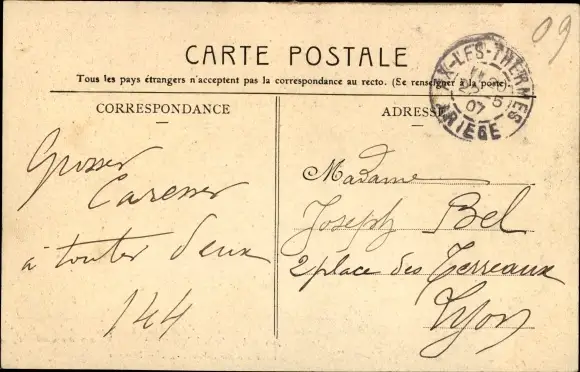 09
CARTE POSTALE
Tous les pays étrangers n'acceptent pas la correspondance au recto. (Se renseigner à la poste)
CORRESPONDANCE
ADRESSE
AX-LES-THERMES
07
ARIEGE
Grosses
Caresses
à toutes deux
144
Madame
Joseph Bel
2 place des Terreaux
Lyon